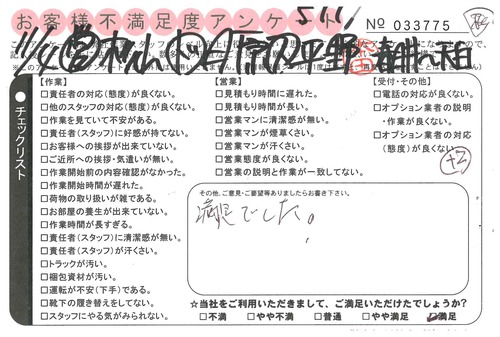 お客様不満足度アンケート
No 033775
チェックリスト
【作業】
□責任者の対応(態度)が良くない。
□他のスタッフの対応(態度)が良くない。
□作業を見ていて不安がある。
□責任者(スタッフ)に好感が持てない。
□お客様への挨拶が出来ていない。
□ご近所への挨拶・気遣いが無い。
□作業開始前の内容確認がなかった。
□作業開始時間が遅れた。
□荷物の取り扱いが雑である。
□お部屋の養生が出来ていない。
□作業時間が長すぎる。
□責任者(スタッフ)に清潔感が無い。
□責任者(スタッフ)が汗くさい。
□トラックが汚い。
□梱包資材が汚い。
□運転が不安(下手)である。
□靴下の履き替えをしてない。
□スタッフにやる気が感じられない。
【営業】
□見積もり時間に遅れた。
□見積もり時間が長い。
□営業マンに清潔感が無い。
□営業マンが煙草くさい。
□営業マンが汗くさい。
□営業態度が良くない。
□営業の説明と作業が一致してない。
【受付・その他】
□電話の対応が良くない。
□オプション業者の説明
・作業が良くない。
□オプション業者の対応
(態度)が良くない。
+2
その他、ご意見・ご要望等ありましたらお書き下さい。
満足でした。
☆当社をご利用いただきまして、ご満足いただけたでしょうか?
□不満 □やや不満 □普通 □やや満足 ☑満足